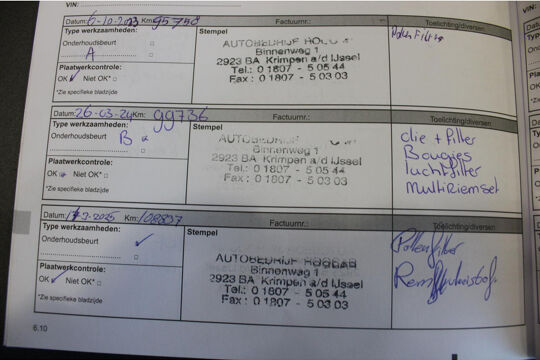 VIN:
Datum: 6-10-2023 Km: 95758
Factuurnr.:
Toelichting/diversen
Type werkzaamheden:
Onderhoudsbeurt
A
Plaatwerkcontrole:
OK Niet OK*
*Zie specifieke bladzijde
Stempel
AUTOBEDRIJF
Binnenweg 1
2923 BA Krimpen a/d IJssel
Tel.: 0 1807 - 5 05 44
Fax: 0 1807 - 5 03 03
Pollenfilter
Datum: 26-03-24 Km: 99736
Factuurnr.:
Toelichting/diversen
Type werkzaamheden:
Onderhoudsbeurt B
Plaatwerkcontrole:
OK Niet OK*
*Zie specifieke bladzijde
Stempel
AUTOBEDRIJF
Binnenweg 1
2923 BA Krimpen a/d IJssel
Tel.: 0 1807 - 5 05 44
Fax: 0 1807 - 5 03 03
olie + filter
Bougies
luchtfilter
Multiriemset
Datum: 2025 Km:
Factuurnr.:
Toelichting/diversen
Type werkzaamheden:
Onderhoudsbeurt
Plaatwerkcontrole:
OK Niet OK*
*Zie specifieke bladzijde
Stempel
AUTOBEDRIJF HOOGAB
Binnenweg 1
2923 BA Krimpen a/d IJssel
Tel.: 0 1807 - 5 05 44
Fax: 0 1807 - 5 03 03
Pollenfilter
6.10